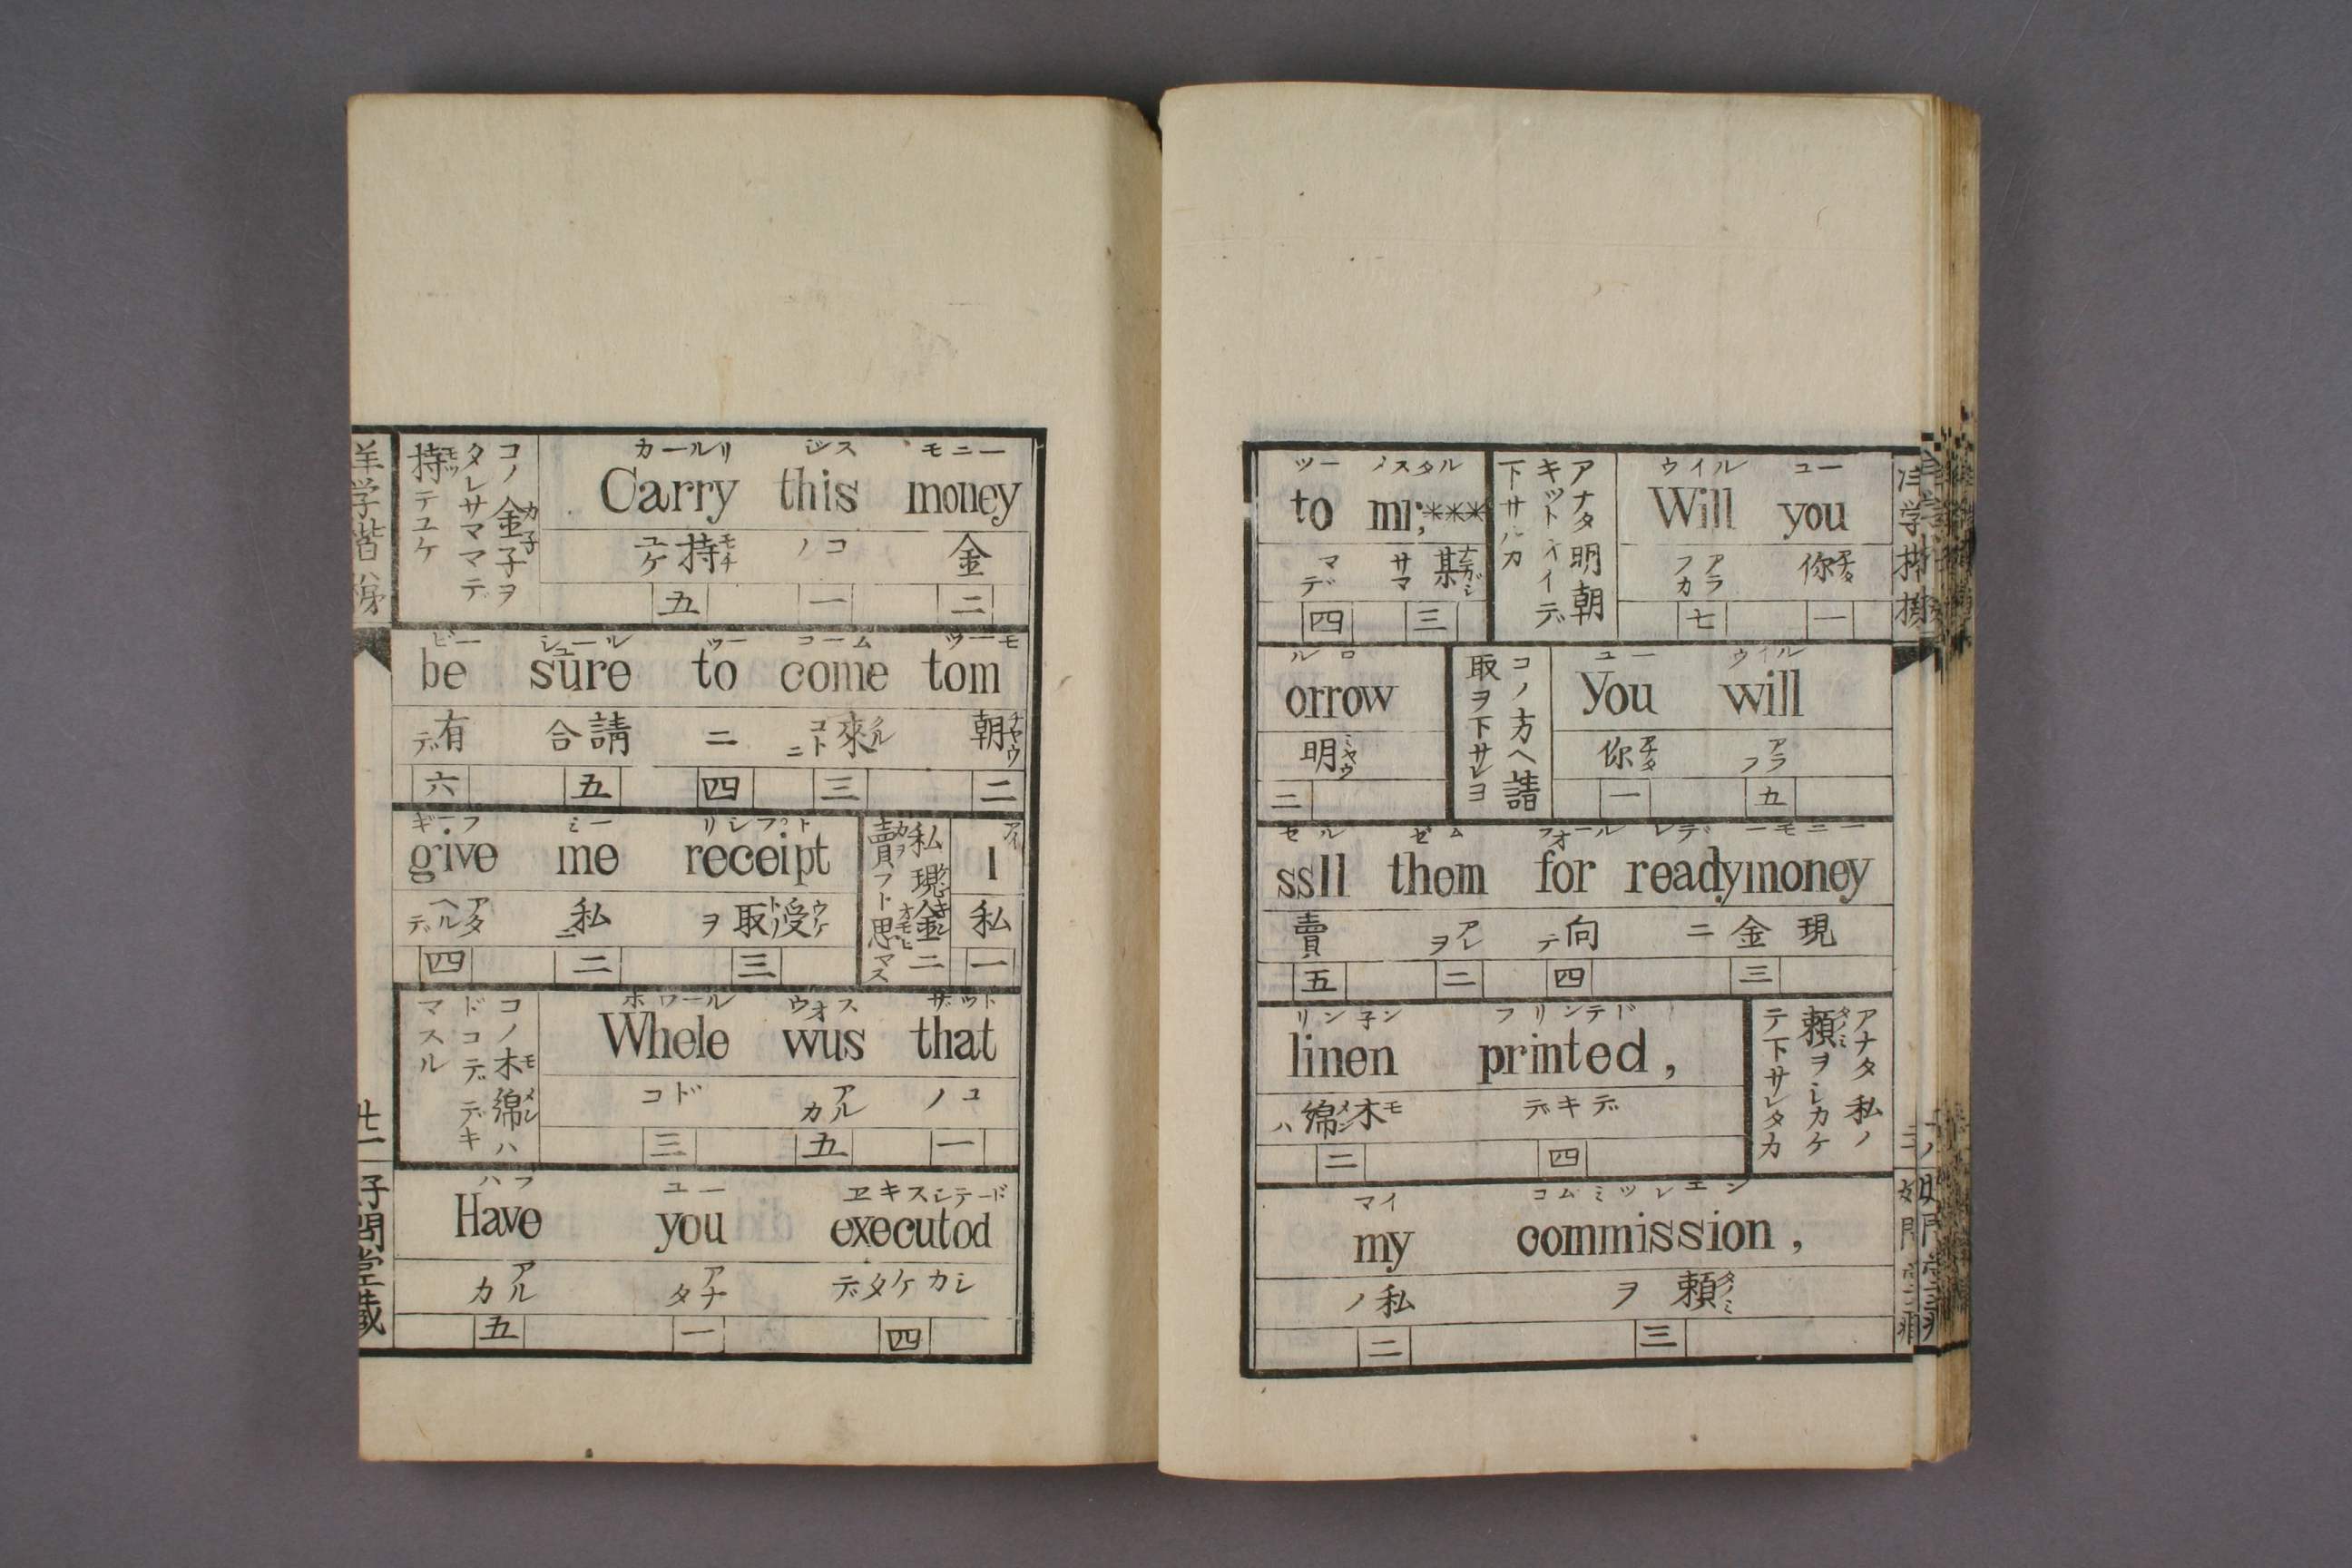 カールリ ジス モニー
Carry this money
持モチユケ コノ 金
五 一 二
コノ金子カ子ヲ
タレサママデ
持モツテユケ
ビー シュール ツー コーム ツーモ
be sure to come tom
有デ 請合 ニ 來クルコトニ 朝チヤウ
六 五 四 三 二
ギーフ ミー リシフット
give me receipt
アタヘルデ 私ニ 受ウケ取トリヲ
四 二 三
アイ
I
私
一
私現金ニ
賣フト思マス
ホワール ウオス ザット
Whele wus that
ドコ アルカ コノ
三 五 一
コノ木モ綿メンハ
ドコデデキ
マスル
ハフ ユー ヱキスシテード
Have you executod
アルカ アナタ シカケタデ
五 一 四
好問堂蔵
ツー ミスタル
to mr,***
マデ 某ナニガシサマ
四 三
ウイル ユー
Will you
アラフカ 你アナタ
七 一
アナタ明朝
キットイイデ
下サルカ
ルロ
orrow
明ミヤウ
二
ユー ウイル
You will
你アナタ アラフ
一 五
コノ方ヘ請
取ヲ下サレヨ
セル ゼム フォール レデーモニー
ssll thom for readymoney
賣 アレヲ 向テ 現金ニ
五 二 四 三
リン子ン フリンテド
linen printed,
木モ綿メンハ デキデ
二 四
アナタ私ノ
頼タノミヲシカケ
テ下サレタカ
マイ コムミツレエン
my commission,
私ノ 頼タノミヲ
二 三